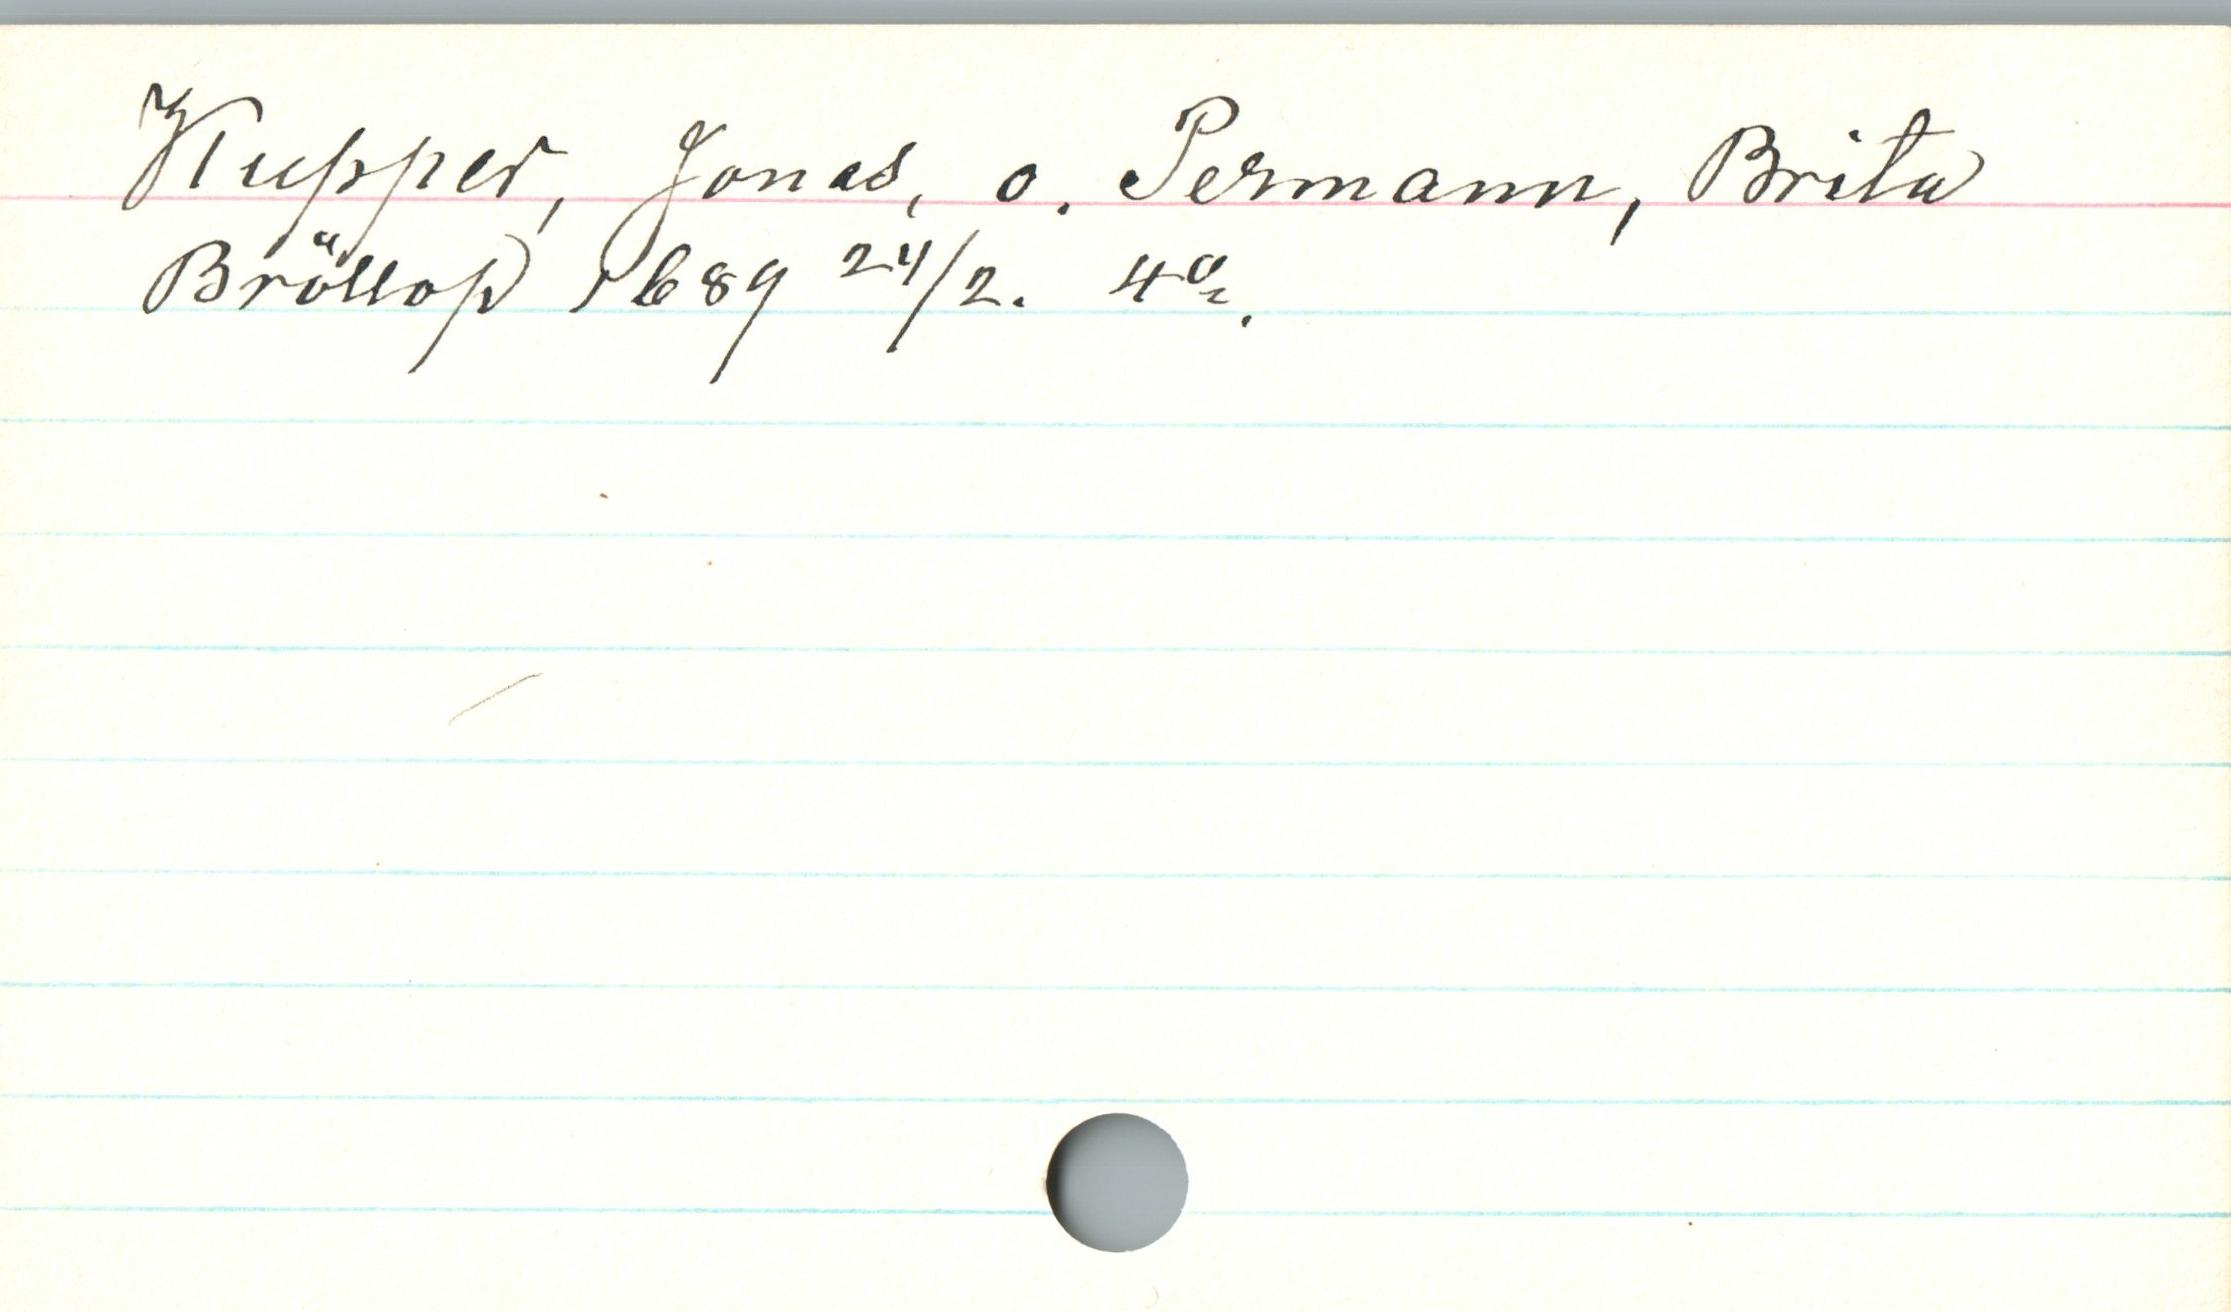 Kupper, Jonas, o. Permann, Brita
Bröllop 1689 24/2. 4:o.